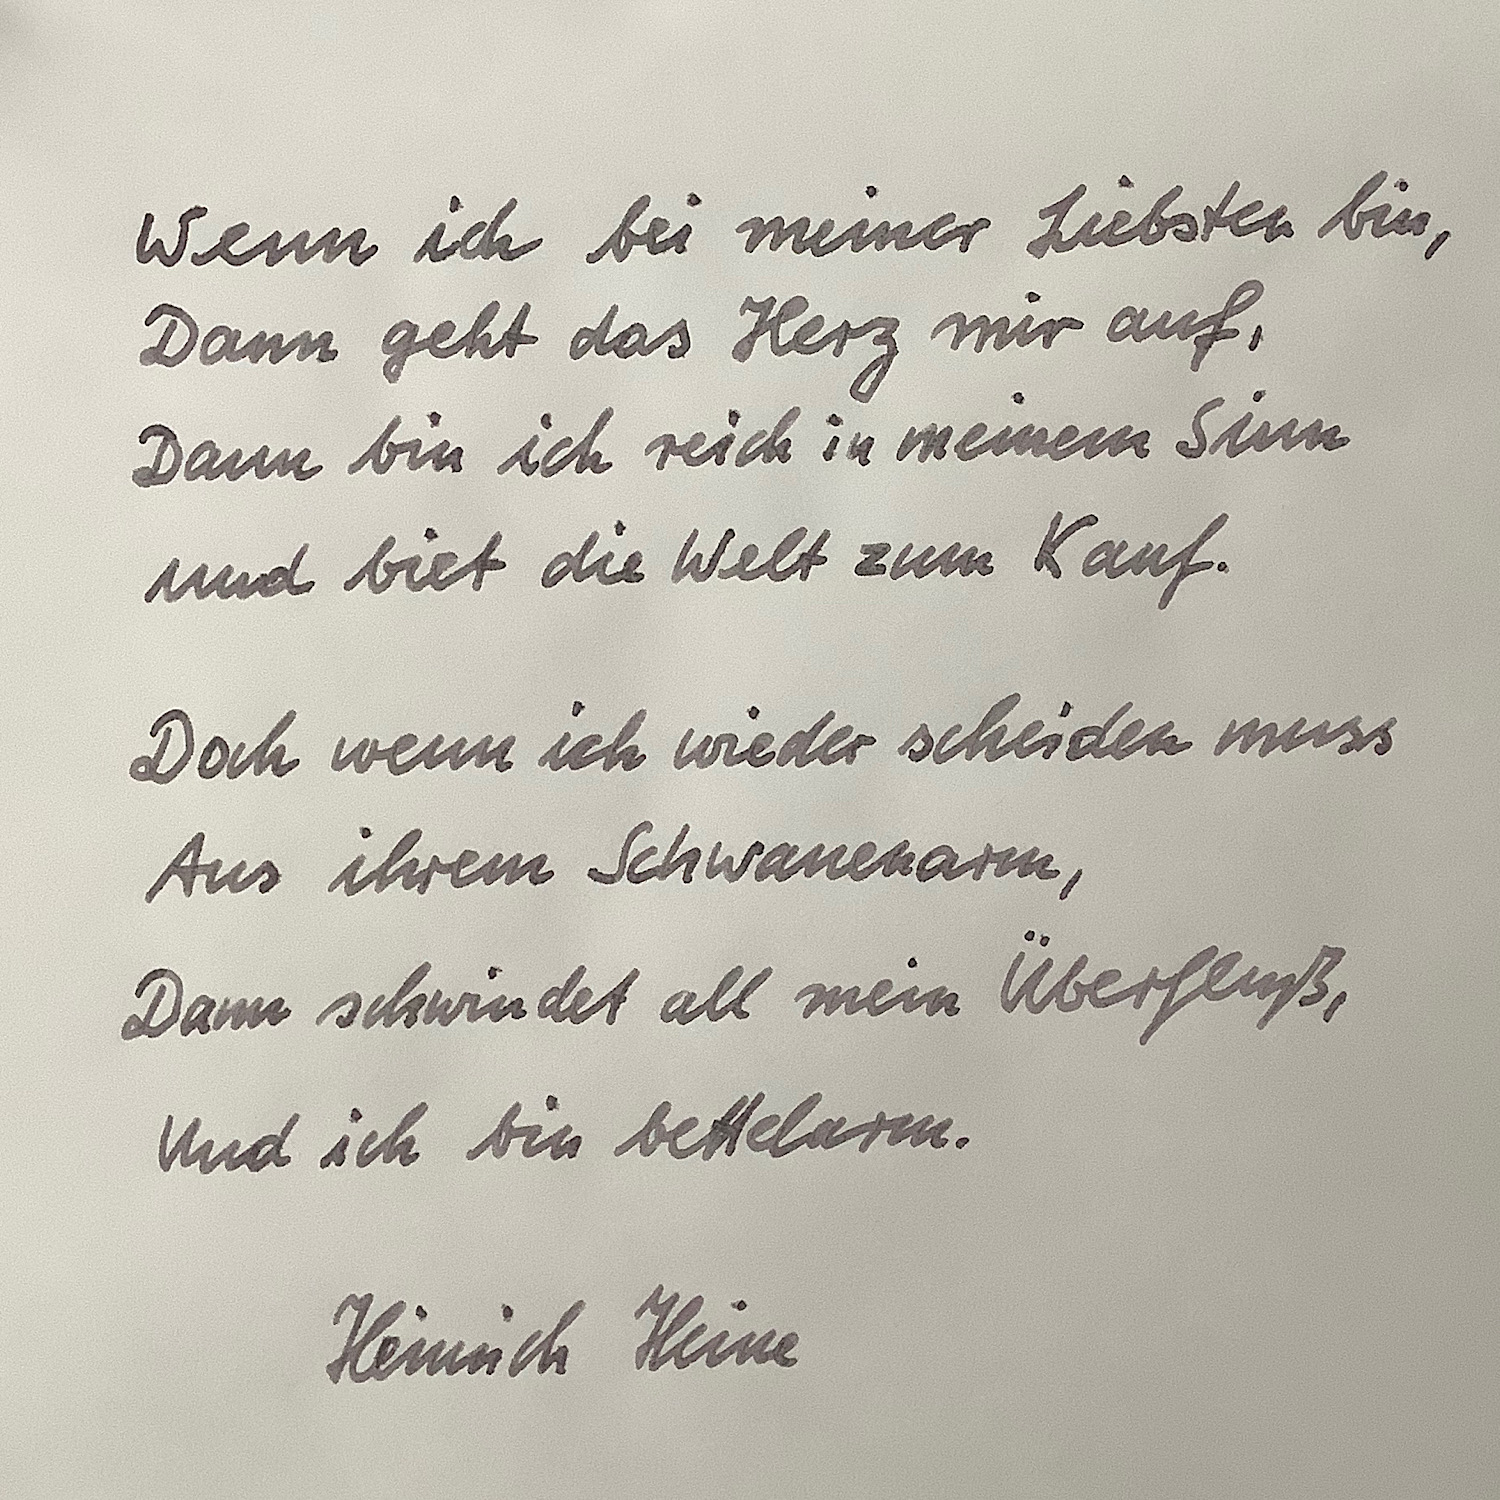 Wenn ich bei meiner Liebsten bin,
Dann geht das Herz mir auf,
Dann bin ich reich in meinem Sinn
und biet die Welt zum Kauf.
Doch wenn ich wieder scheiden muss
Aus ihrem Schwanenarm,
Dann schwindet all mein Überfluß,
Und ich bin bettelarm.
Heinrich Heine